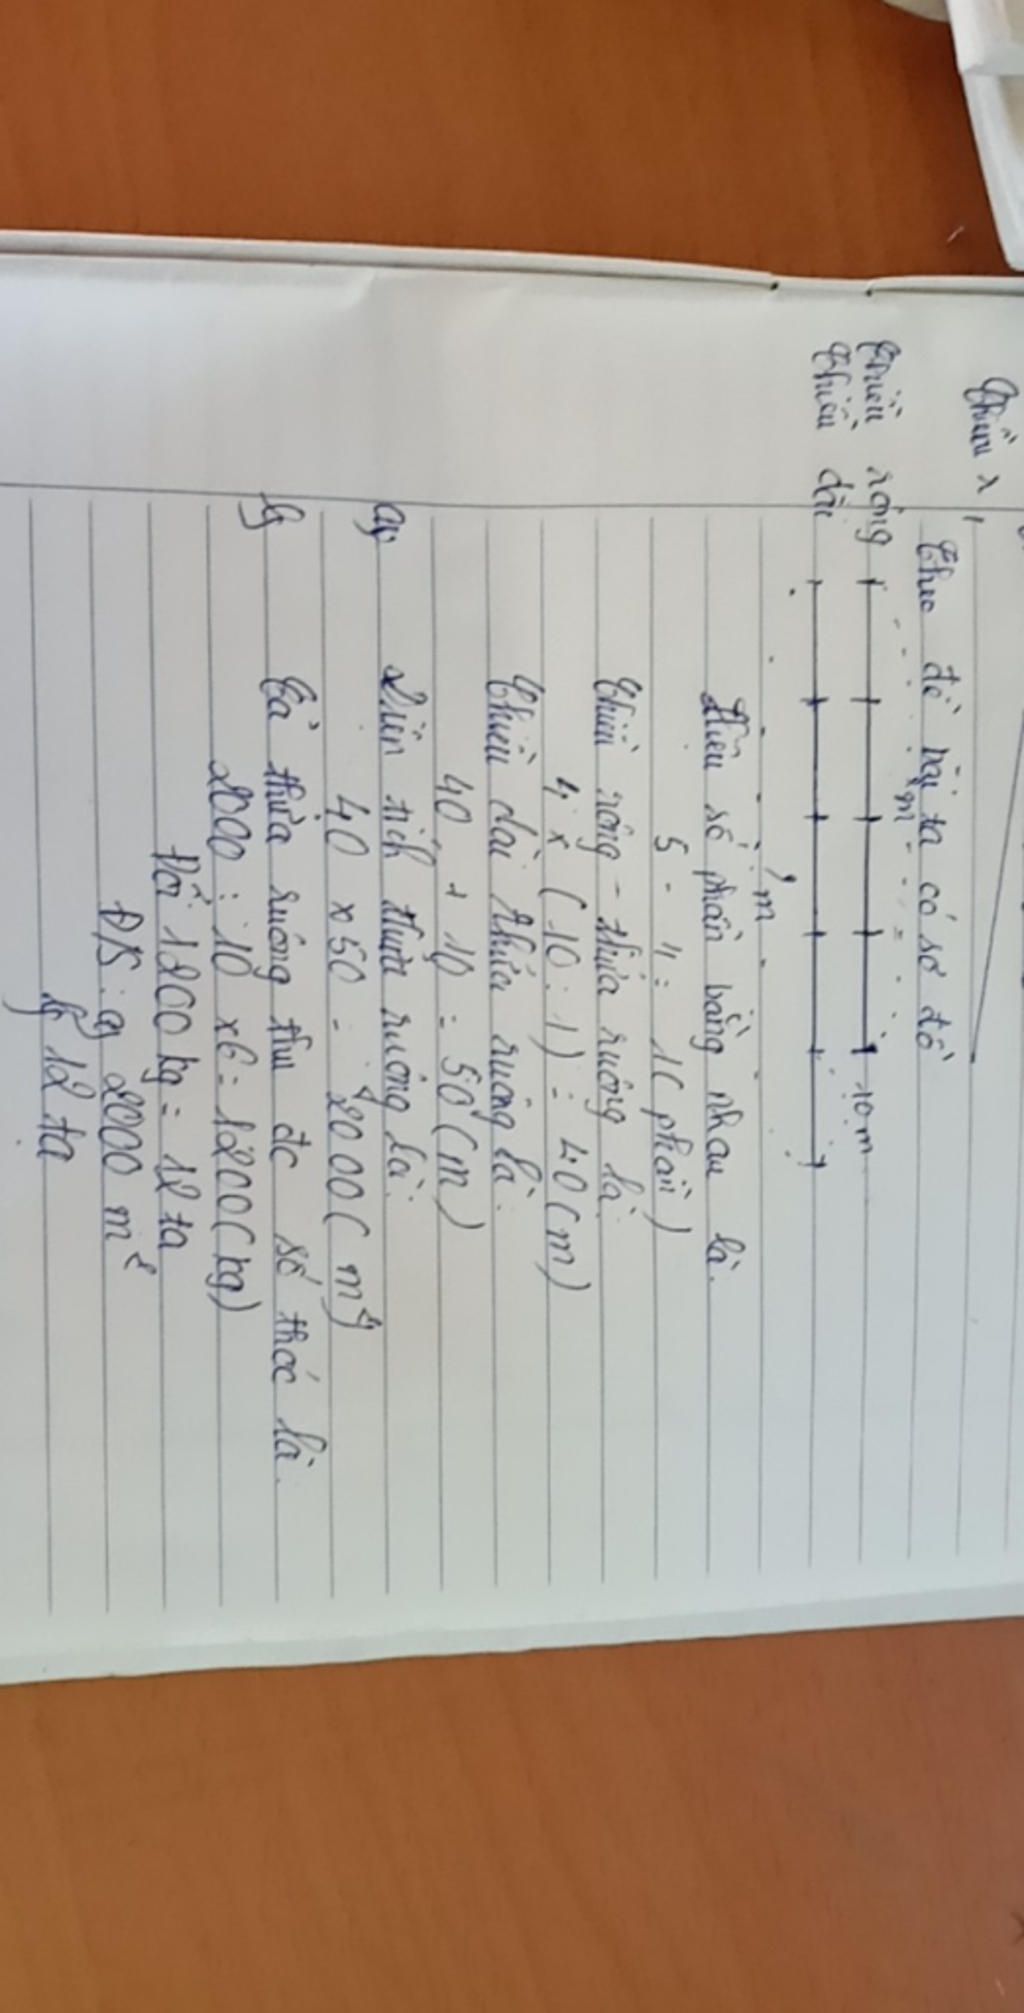 Theo đề bài ta có sơ đồ
? m
Chiều rộng 10 m
Chiều dài
? m
Hiệu số phần bằng nhau là:
5 - 4 = 1 ( phần )
Chiều rộng thửa ruộng là:
4 x ( 10 : 1 ) = 40 ( m )
Chiều dài thửa ruộng là:
40 + 10 = 50 ( m )
a) Diện tích thửa ruộng là:
40 x 50 = 2000 ( m² )
b) Cả thửa ruộng thu đc số thóc là:
2000 : 10 x 6 = 1200 ( kg )
Đổi: 1200 kg = 12 tạ
ĐS: a) 2000 m²
b) 12 tạ